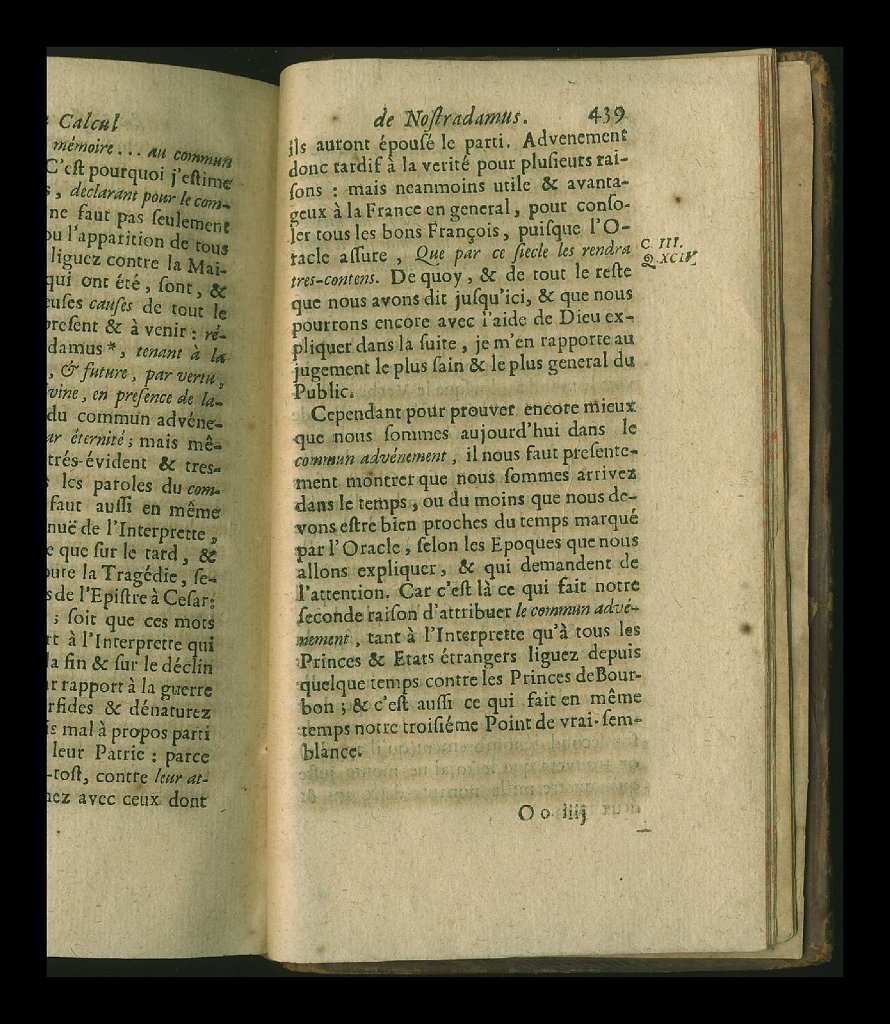 Calcul
mémoire... au commun
C'eſt pourquoi j'eſtime
, declarant pour le com-
ne faut pas ſeulement
ou l'apparition de tous
liguez contre la Mai-
qui ont été, ſont, &
euſes cauſes de tout le
preſent & à venir: ré-
damus*, tenant à la
, & future, par vertu,
vine, en preſence de la-
du commun advéne-
ar éternité; mais mê-
trés-évident & tres-
les paroles du com-
faut auſſi en même
nuë de l'Interprette,
e que ſur le tard, &
oute la Tragédie, ſe-
s de l'Epiſtre à Ceſar:
; ſoit que ces mots
rt à l'Interprette qui
la fin & ſur le déclin
r rapport à la guerre
rfides & dénaturez
is mal à propos parti
leur Patrie: parce
-toſt, contre leur at-
nez avec ceux dont
de Noſtradamus. 439
ils auront épouſé le parti. Advenement
donc tardif à la verité pour pluſieurs rai-
ſons: mais neanmoins utile & avanta-
geux à la France en general, pour conſo-
ler tous les bons François, puiſque l'O-
racle aſſure, Que par ce ſiecle les rendra
tres-contens. De quoy, & de tout le reſte
que nous avons dit juſqu'ici, & que nous
pourrons encore avec l'aide de Dieu ex-
pliquer dans la ſuite, je m'en rapporte au
jugement le plus ſain & le plus general du
Public.
Cependant pour prouver encore mieux
que nous ſommes aujourd'hui dans le
commun advénement, il nous faut preſente-
ment montrer que nous ſommes arrivez
dans le temps, ou du moins que nous de-
vons eſtre bien proches du temps marqué
par l'Oracle, ſelon les Epoques que nous
allons expliquer, & qui demandent de
l'attention. Car c'eſt là ce qui fait notre
ſeconde raiſon d'attribuer le commun advé-
nement, tant à l'Interprette qu'à tous les
Princes & Etats étrangers liguez depuis
quelque temps contre les Princes de Bour-
bon; & c'eſt auſſi ce qui fait en même
temps notre troiſiéme Point de vrai-ſem-
blance.
O o iiij
C. III.
Q. XCIV.